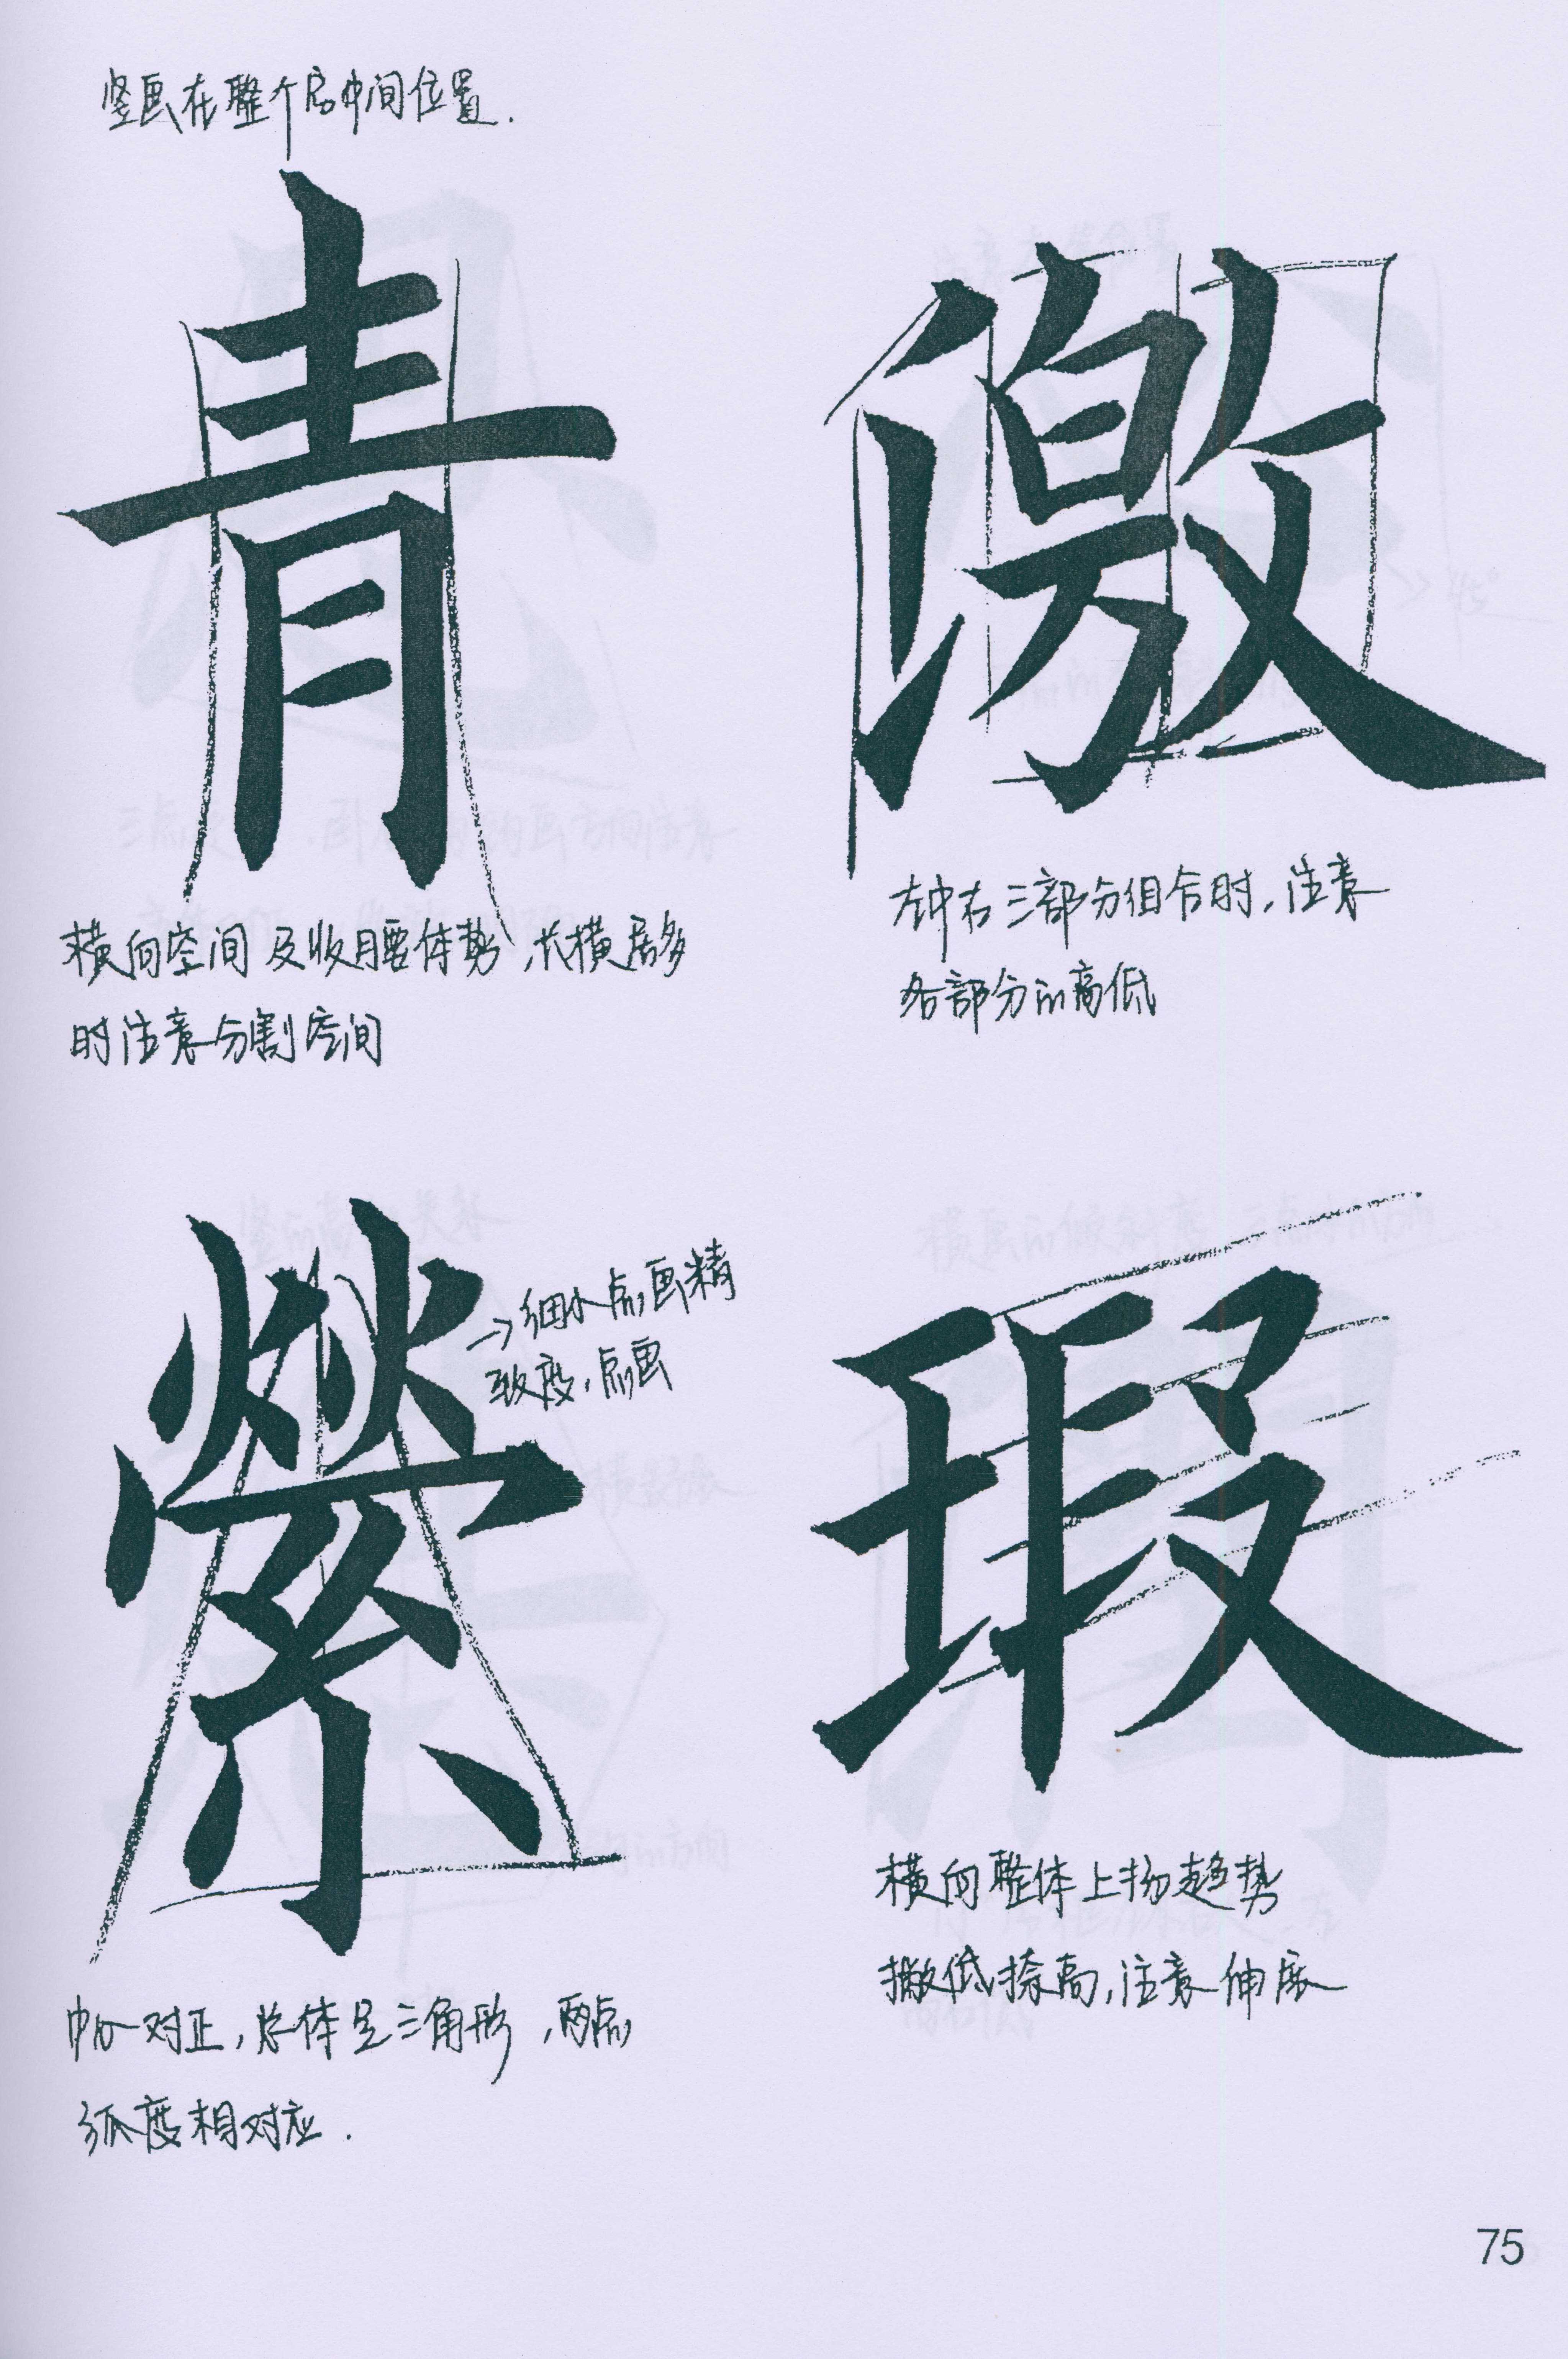 竖画在整个居中间位置.
青
横向空间及收腰体势,长横居多
时注意分割空间
激
左中右三部分组合时,注意
各部分的高低
萦
→细小点画精
致度,点画
中心对正,总体呈三角形,两点
弧度相对应.
瑕
横向整体上扬趋势
撇低捺高,注意伸展
75